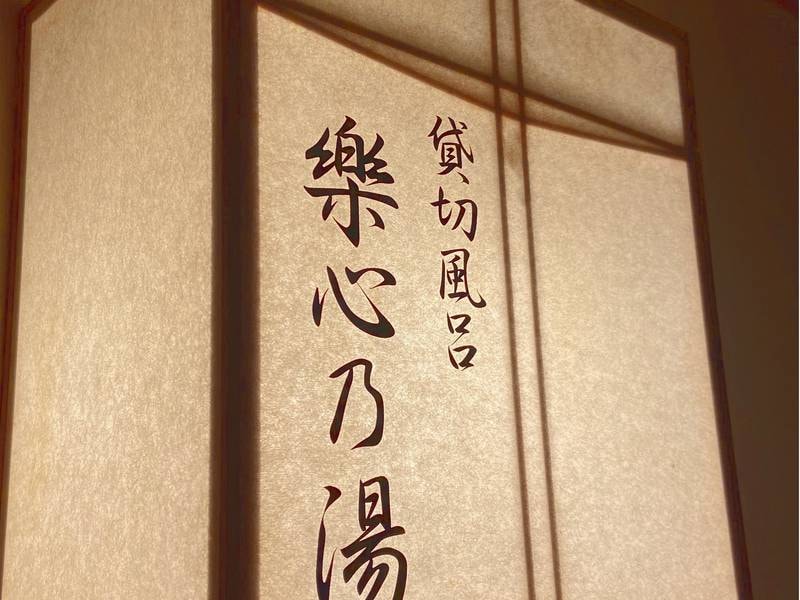 貸切風呂
樂心乃湯